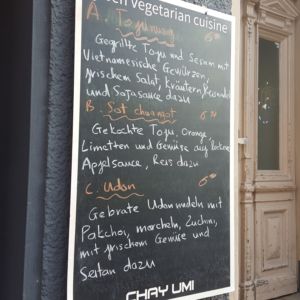 vegetarian cuisine
A. Toqunung 6⁵⁰
Gegrillte Toqu und Sesam mit
Vietnamesische Gewürzen,
frischem Salat, Kräutern, Reisnudeln
und Sojasauce dazu
B. Sot chua ngot 6⁵⁰
Gekochte Toqu, orange
Limetten und Gemüse auf
Apfelsauce, Reis dazu
C. Udon 6⁵⁰
Gebrate Udonnudeln mit
Pakchoi, morcheln, Zuchini,
mit frischem Gemüse und
Seitan dazu
CHAY UMI